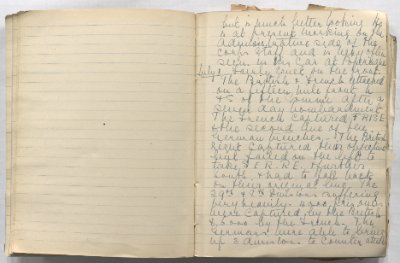 but is much better looking. He
is at present working on the
administrative side of the
Corps Staff and is very often
seen in his car at
July 1
The British & French attacked
on a fifteen mile front N
& S of the Somme after a
seven day bombardment
The French captured
the second line of the
German trenches. The British
right captured their objective
but failed on the left to
take SERRE. Further
South & had to fall back
on their original line. The
29th & Divisions suffering
very heavily. 4000 prisoners
were captured by the British
& 6000 by the French. The
Germans were able to bring
up 2 divisions to counter attack